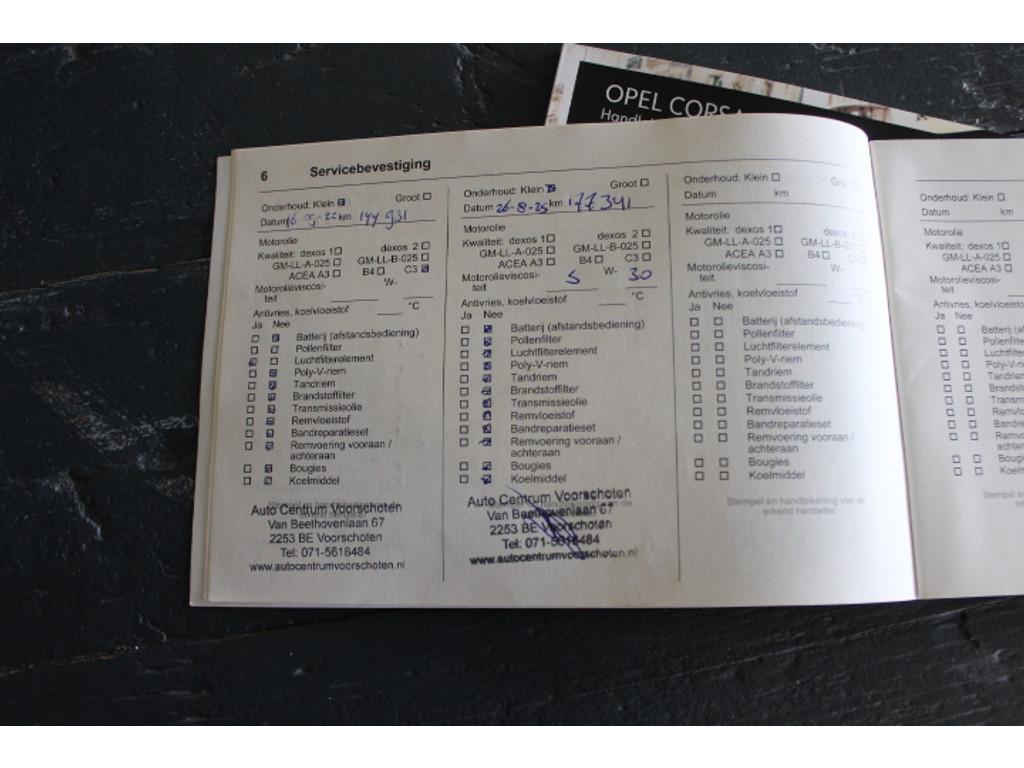 OPEL CORSA
6 Servicebevestiging
Onderhoud: Klein Groot
Datum km 144 931
Motorolie
Kwaliteit: dexos 1 dexos 2
GM-LL-A-025 GM-LL-B-025
ACEA A3 B4 C3
Motorolieviscosi- W-
teit
Antivries, koelvloeistof °C
Ja Nee
Batterij (afstandsbediening)
Pollenfilter
Luchtfilterelement
Poly-V-riem
Tandriem
Brandstoffilter
Transmissieolie
Remvloeistof
Bandreparatieset
Remvoering vooraan /
achteraan
Bougies
Koelmiddel
Stempel en handtekening van de
Auto Centrum Voorschoten
Van Beethovenlaan 67
2253 BE Voorschoten
Tel: 071-5618484
www.autocentrumvoorschoten.nl
Onderhoud: Klein Groot
Datum 26-8-25 km 177341
Motorolie
Kwaliteit: dexos 1 dexos 2
GM-LL-A-025 GM-LL-B-025
ACEA A3 B4 C3
Motorolieviscosi- 5 W- 30
teit
Antivries, koelvloeistof °C
Ja Nee
Batterij (afstandsbediening)
Pollenfilter
Luchtfilterelement
Poly-V-riem
Tandriem
Brandstoffilter
Transmissieolie
Remvloeistof
Bandreparatieset
Remvoering vooraan /
achteraan
Bougies
Koelmiddel
Auto Centrum Voorschoten
Van Beethovenlaan 67
2253 BE Voorschoten
Tel: 071-5618484
www.autocentrumvoorschoten.nl
Onderhoud: Klein Groot
Datum km
Motorolie
Kwaliteit: dexos 1 dexos 2
GM-LL-A-025 GM-LL-B-025
ACEA A3 B4 C3
Motorolieviscosi- W-
teit
Antivries, koelvloeistof °C
Ja Nee
Batterij (afstandsbediening)
Pollenfilter
Luchtfilterelement
Poly-V-riem
Tandriem
Brandstoffilter
Transmissieolie
Remvloeistof
Bandreparatieset
Remvoering vooraan /
achteraan
Bougies
Koelmiddel
Stempel en handtekening van de
erkend hersteller
Onderhoud: Klein
Datum km
Motorolie
Kwaliteit: dexos 1
GM-LL-A-025
ACEA A3
Motorolieviscosi-
teit
Antivries, koelvloeistof
Ja Nee
Batterij (af
Pollenfilte
Luchtfilte
Poly-V-ri
Tandrien
Brandsto
Transm
Remvlo
Bandre
Remvo
achter
Boug
Koelm
Stempel en
erk